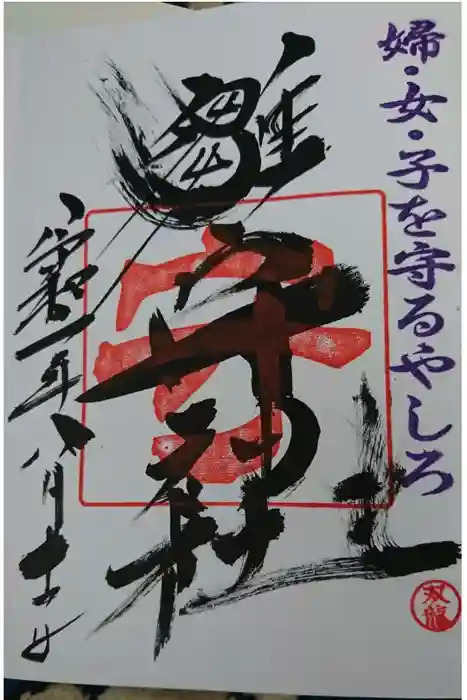 婦・女・子を守るやしろ
雛守社
令和一年八月
双龍